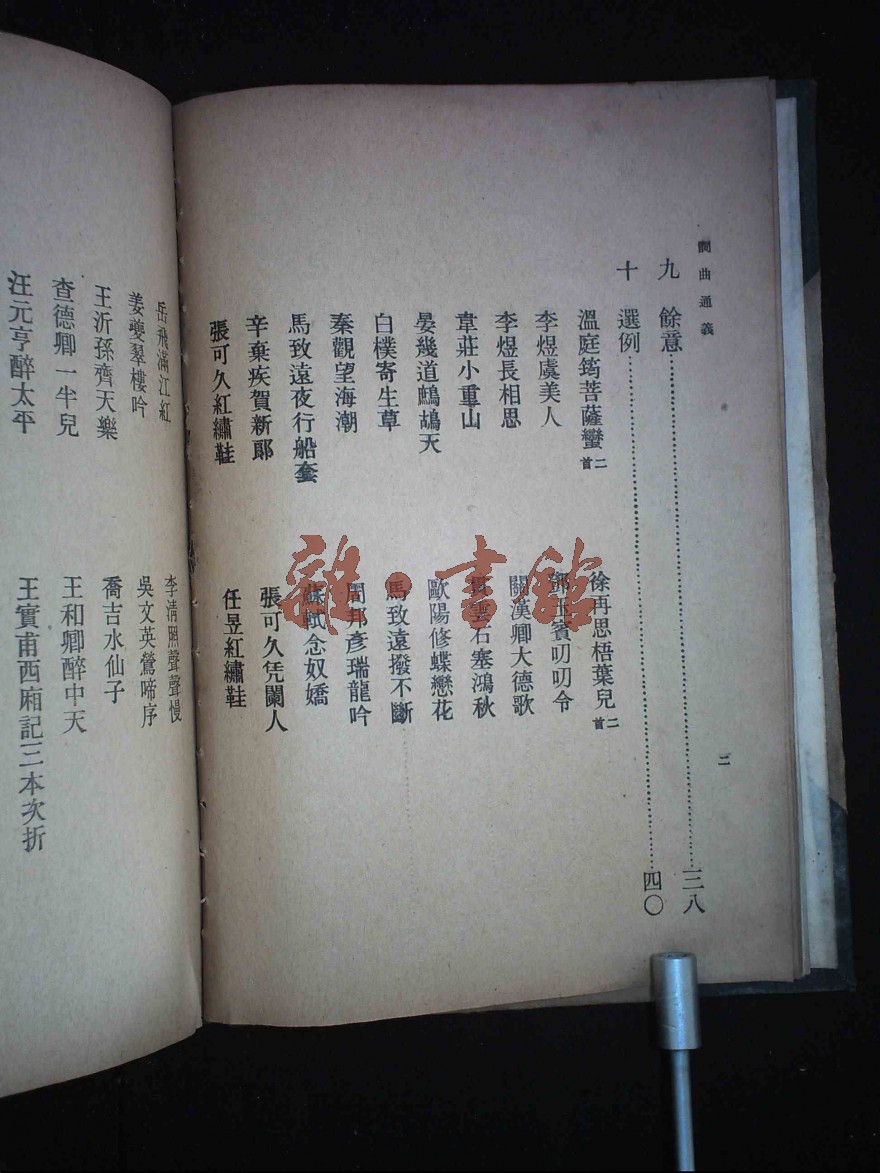 詞曲通義
二
九 餘意……三八
十 選例……四〇
溫庭筠菩薩蠻二首
徐再思梧葉兒二首
李煜虞美人
鄧玉賓叨叨令
李煜長相思
關漢卿大德歌
韋莊小重山
貫雲石塞鴻秋
晏幾道鷓鴣天
歐陽修蝶戀花
白樸寄生草
馬致遠撥不斷
秦觀望海潮
周邦彥瑞龍吟
馬致遠夜行船套
蘇軾念奴嬌
辛棄疾賀新郞
張可久凭闌人
張可久紅繡鞋
任昱紅繡鞋
岳飛滿江紅
李淸照聲聲慢
姜夔翠樓吟
吳文英鶯啼序
王沂孫齊天樂
喬吉水仙子
查德卿一半兒
王和卿醉中天
汪元亨醉太平
王實甫西廂記三本次折
雜·書館